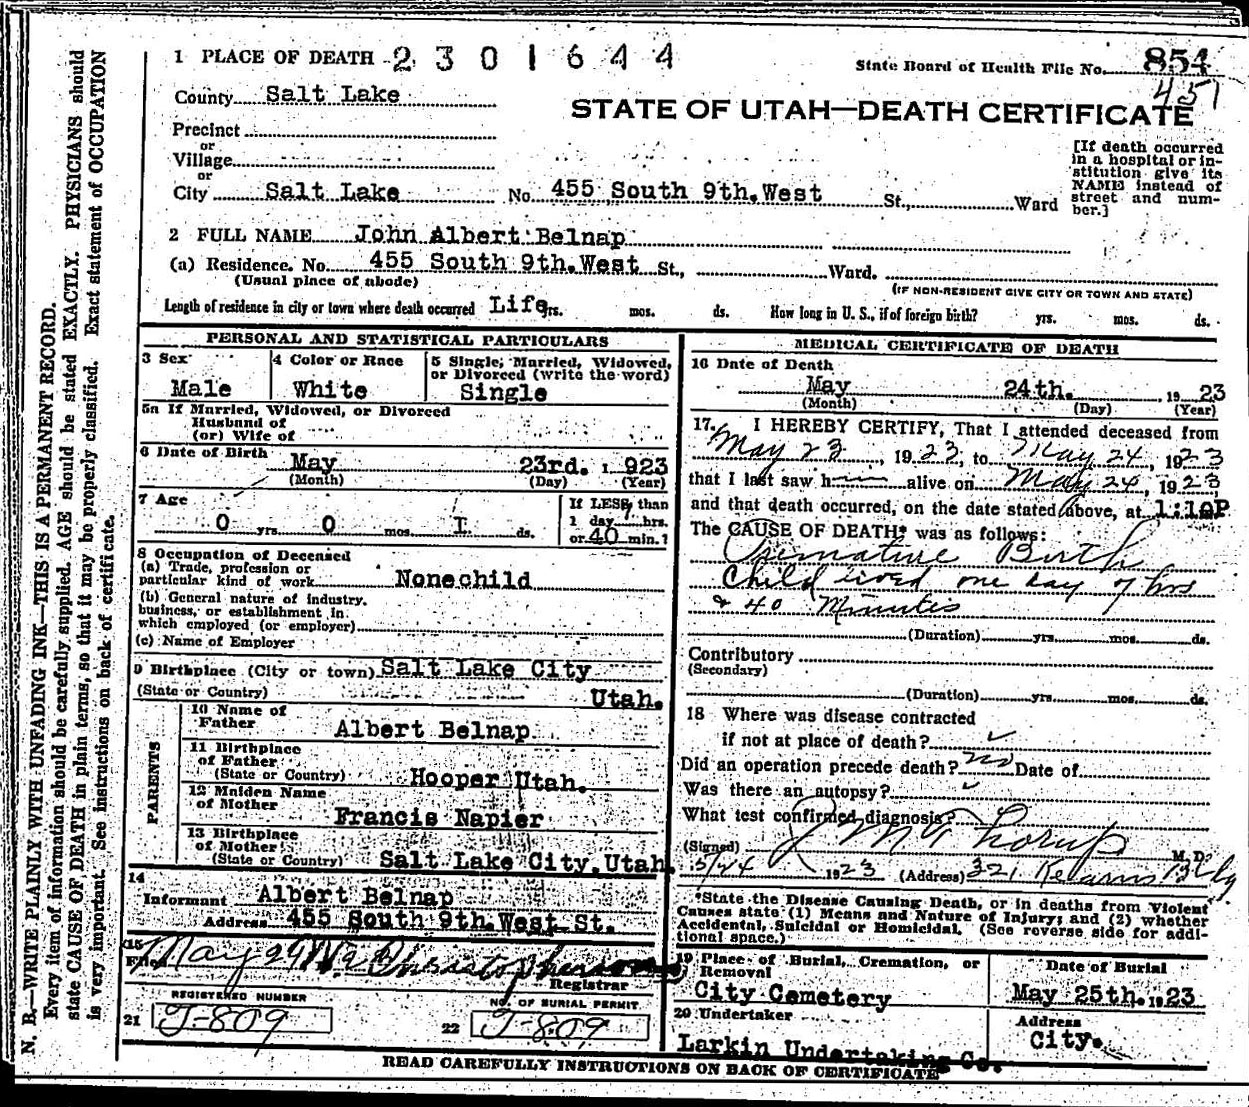 1 PLACE OF DEATH 2301644
State Board of Health File No. 854
451
County Salt Lake
STATE OF UTAH—DEATH CERTIFICATE
Precinct
or
Village
or
City Salt Lake No. 455 South 9th. West St., Ward
[If death occurred
in a hospital or in-
stitution give its
NAME instead of
street and num-
ber.]
2 FULL NAME John Albert Belnap
(a) Residence. No. 455 South 9th. West St., Ward.
(Usual place of abode)
(IF NON-RESIDENT GIVE CITY OR TOWN AND STATE)
Length of residence in city or town where death occurred Life yrs. mos. ds. How long in U. S., if of foreign birth? yrs. mos. ds.
PERSONAL AND STATISTICAL PARTICULARS
3 Sex
Male
4 Color or Race
White
5 Single, Married, Widowed,
or Divorced (write the word)
Single
5a If Married, Widowed, or Divorced
Husband of
(or) Wife of
6 Date of Birth
May 23rd. 1923
(Month) (Day) (Year)
7 Age
0 yrs. 0 mos. 1 ds.
If LESS than
1 day 7 hrs.
or 40 min.?
8 Occupation of Deceased
(a) Trade, profession or
particular kind of work Nonechild
(b) General nature of industry,
business, or establishment in
which employed (or employer)
(c) Name of Employer
9 Birthplace (City or town) Salt Lake City
(State or Country) Utah.
PARENTS
10 Name of
Father Albert Belnap
11 Birthplace
of Father
(State or Country) Hooper Utah.
12 Maiden Name
of Mother Francis Napier
13 Birthplace
of Mother
(State or Country) Salt Lake City, Utah.
14
Informant Albert Belnap
Address 455 South 9th. West St.
15
Filed May 24 1923
Registrar
REGISTERED NUMBER
21 J-809
NO. OF BURIAL PERMIT
22 J-809
MEDICAL CERTIFICATE OF DEATH
16 Date of Death
May 24th. 1923
(Month) (Day) (Year)
17. I HEREBY CERTIFY, That I attended deceased from
May 23, 1923, to May 24, 1923
that I last saw h alive on May 24, 1923,
and that death occurred, on the date stated above, at 1:10P
The CAUSE OF DEATH* was as follows:
Premature Birth
Child lived one day 7 hrs
& 40 Minutes
(Duration) yrs. mos. ds.
Contributory
(Secondary)
(Duration) yrs. mos. ds.
18 Where was disease contracted
if not at place of death?
Did an operation precede death? no Date of
Was there an autopsy?
What test confirmed diagnosis?
(Signed) M. D.
5/24 1923 (Address) 321 Kearns Bldg
*State the Disease Causing Death, or in deaths from Violent
Causes state (1) Means and Nature of Injury; and (2) whether
Accidental, Suicidal or Homicidal. (See reverse side for addi-
tional space.)
19 Place of Burial, Cremation, or
Removal
City Cemetery
Date of Burial
May 25th. 1923
20 Undertaker
Larkin Undertaking Co.
Address
City.
READ CAREFULLY INSTRUCTIONS ON BACK OF CERTIFICATE
N. B.—WRITE PLAINLY WITH UNFADING INK—THIS IS A PERMANENT RECORD.
Every item of information should be carefully supplied. AGE should be stated EXACTLY. PHYSICIANS should
state CAUSE OF DEATH in plain terms, so that it may be properly classified. Exact statement of OCCUPATION
is very important. See instructions on back of certificate.